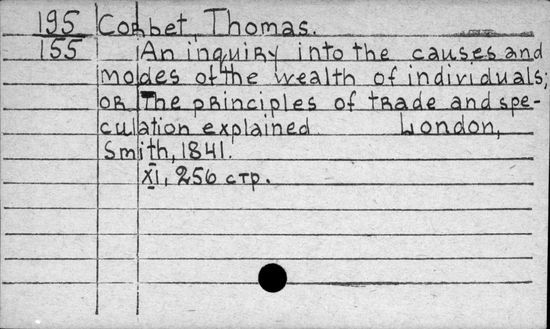 195 Corbet, Thomas.
155 An inquiry into the causes and
modes of the wealth of individuals;
or the principles of trade and spe-
culation explained London,
Smith, 1841.
XI, 256 стр.